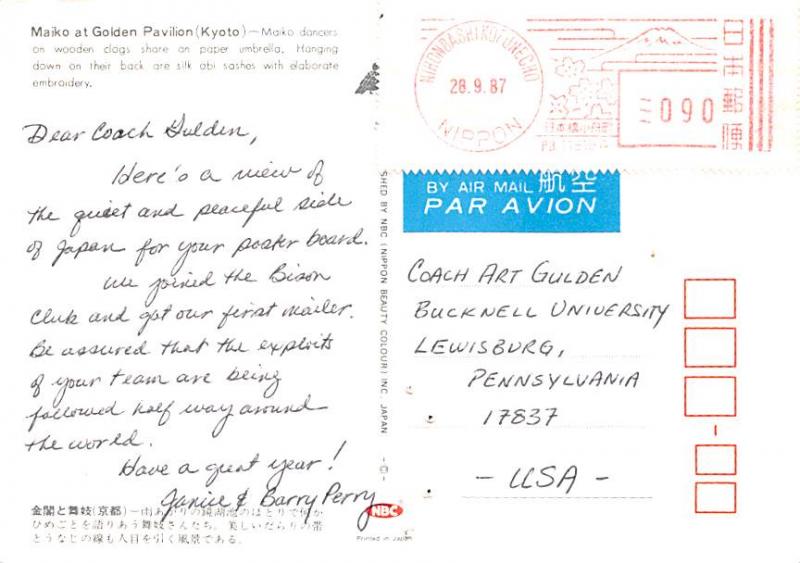 Maiko at Golden Pavilion (Kyoto) — Maiko dancers
on wooden clogs share an paper umbrella. Hanging
down on their back are silk obi sashes with elaborate
embroidery.
Dear Coach Gulden,
Here's a view of
the quiet and peaceful side
of Japan for your poster board.
We joined the Bison
Club and got our first mailer.
Be assured that the exploits
of your team are being
followed half way around
the world.
Have a great year!
Janice & Barry Perry
金閣と舞妓(京都)—雨あがりの鏡湖池のほとりで何か
ひめごとを語りあう舞妓さんたち。美しいだらりの帯
とうなじの線も人目を引く風景である。
SHED BY NBC (NIPPON BEAUTY COLOUR) INC. JAPAN
NBC
Printed in Japan
NIHONBASHIKOFUNECHO
28.9.87
NIPPON
日本橋小舟町
090
日本郵便
BY AIR MAIL 航空
PAR AVION
COACH ART GULDEN
BUCKNELL UNIVERSITY
LEWISBURG,
PENNSYLVANIA
17837
- USA -